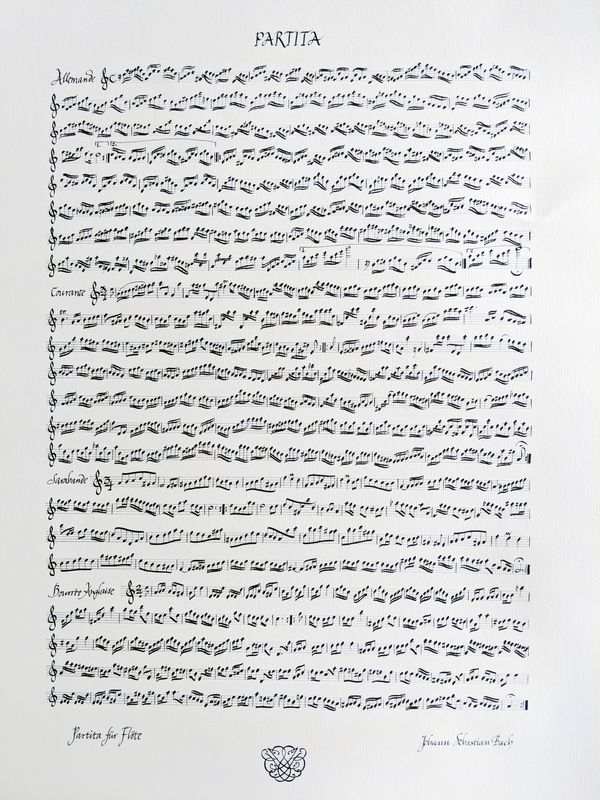 PARTITA
Allemande
Courante
Sarabande
Bourrée Anglaise
Partita für Flöte
Johann Sebastian Bach